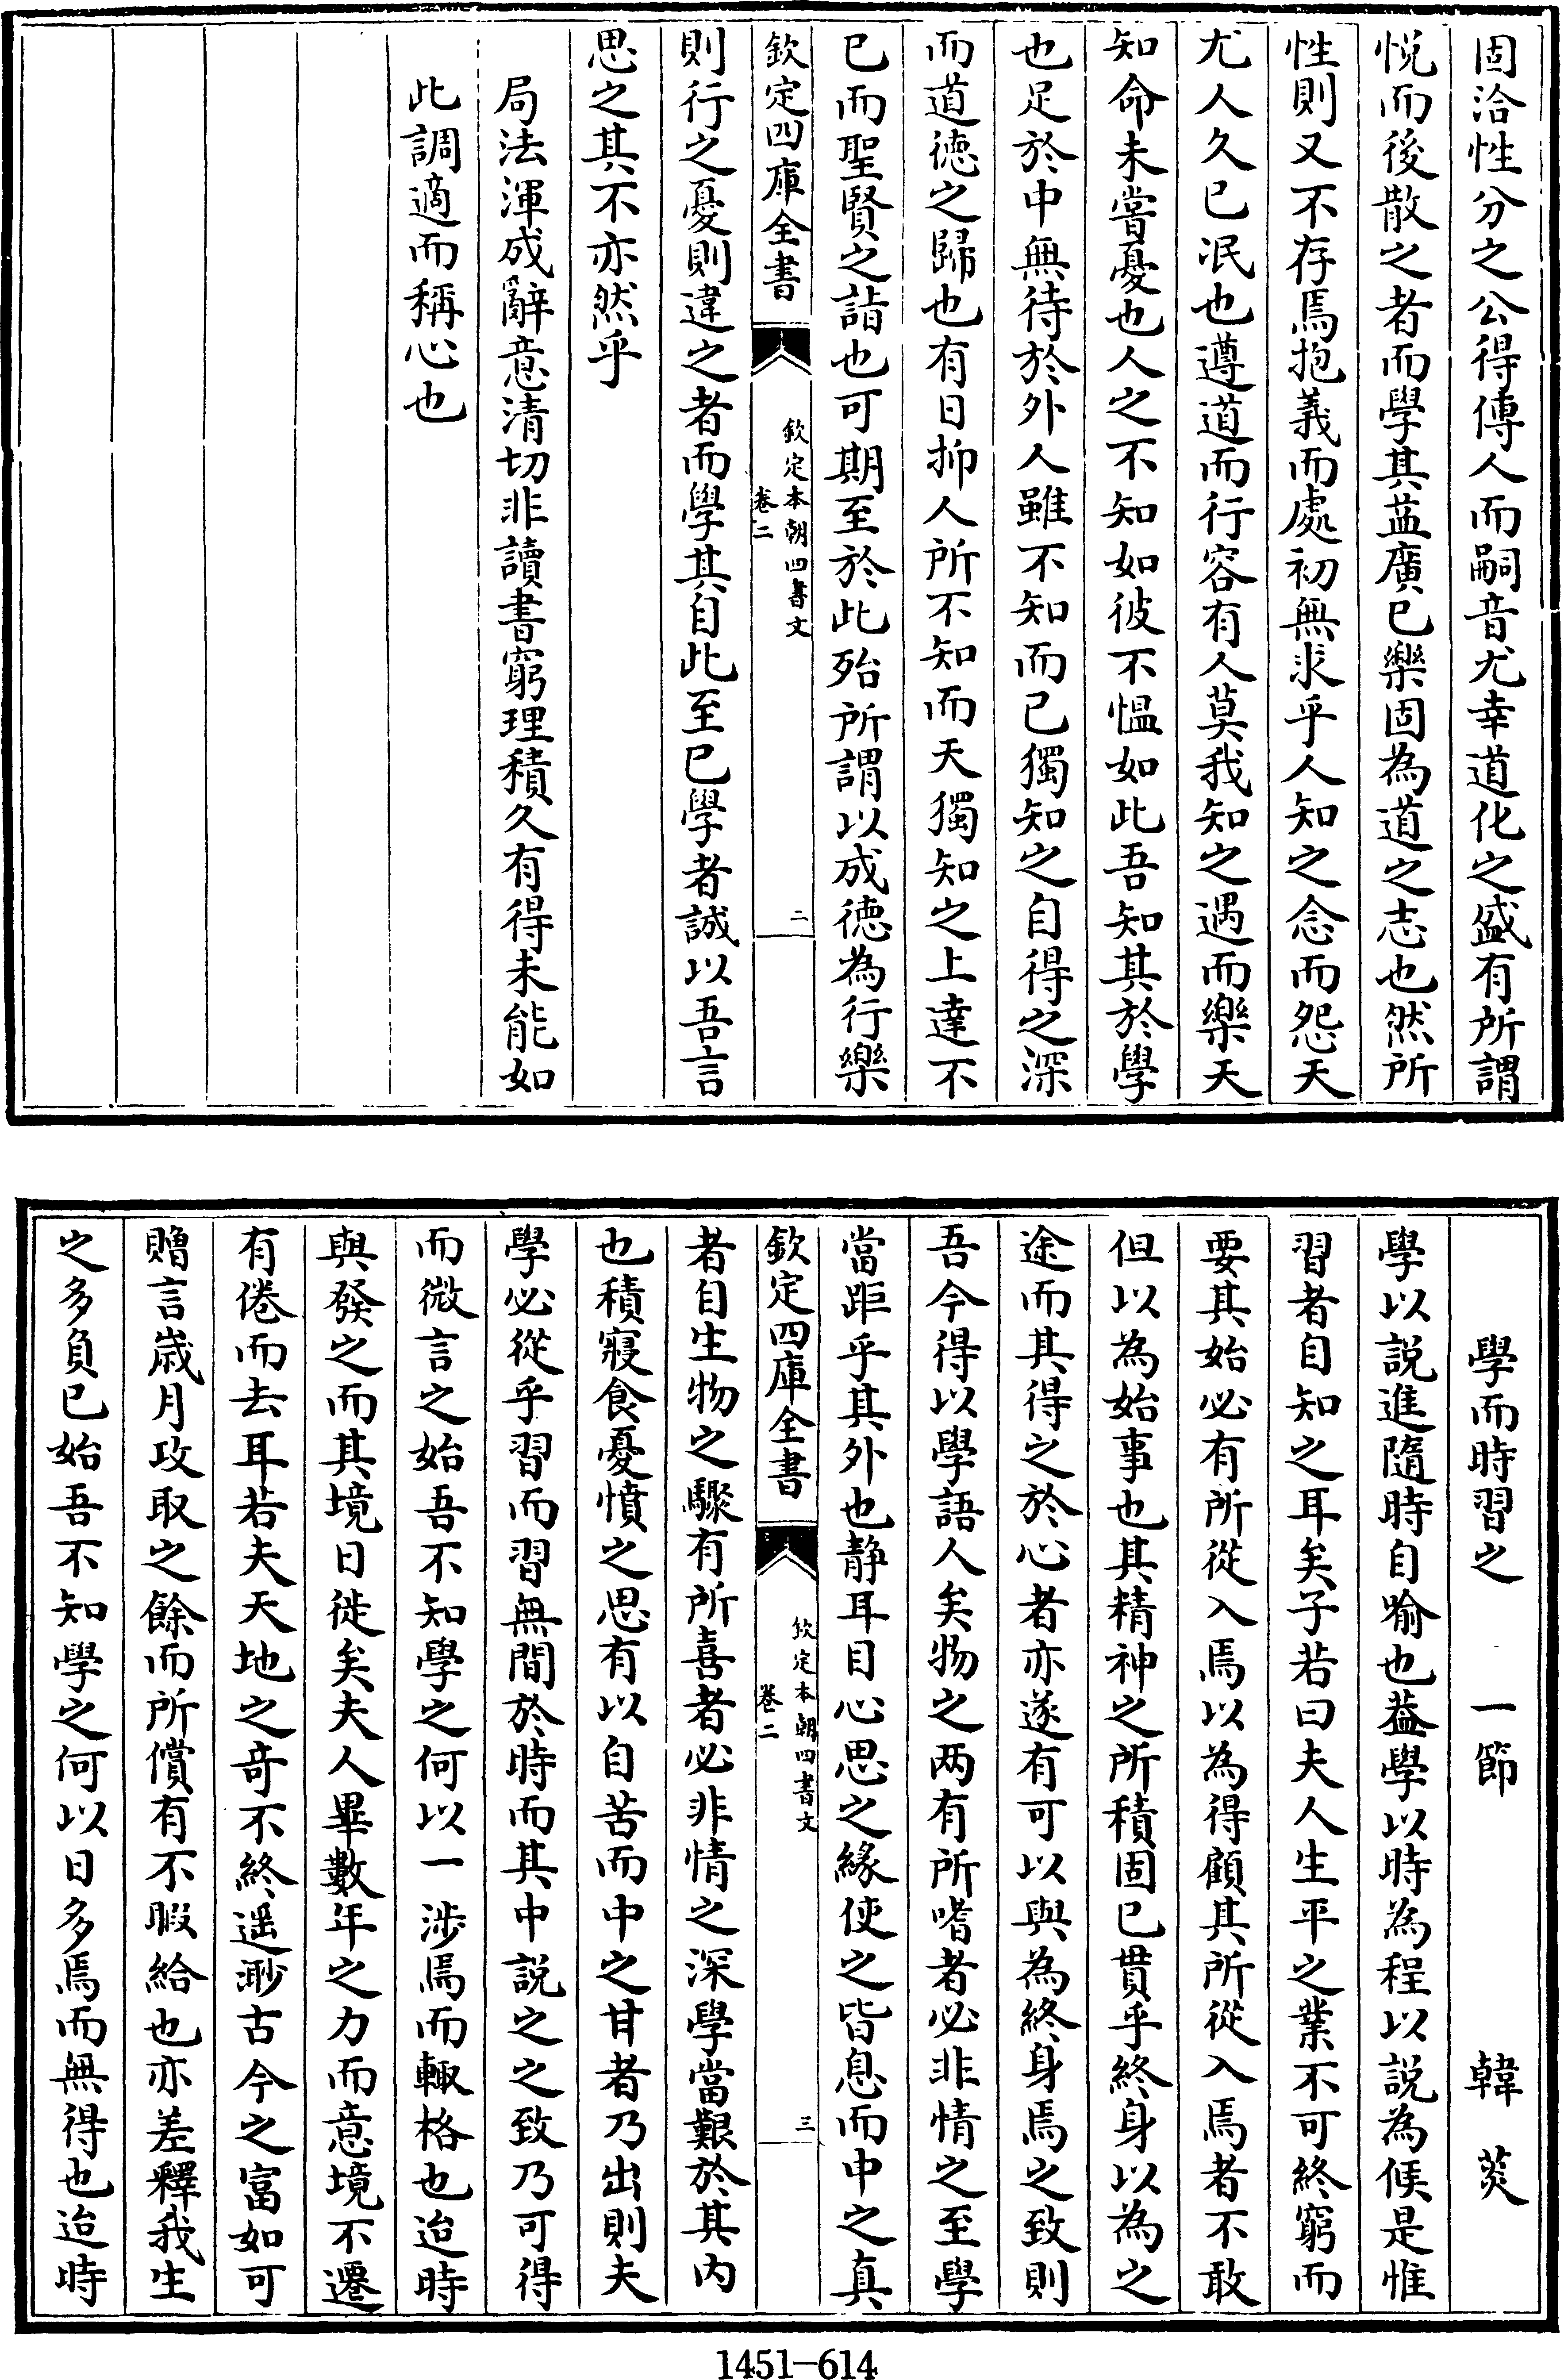 固洽性分之公得傳人而嗣音尤幸道化之盛有所謂
悦而後散之者而學其益廣已樂固為道之志也然所
性則又不存焉抱義而處初無求乎人知之念而怨天
尤人久已泯也遵道而行容有人莫我知之遇而樂天
知命未嘗憂也人之不知如彼不愠如此吾知其於學
也足於中無待於外人雖不知而已獨知之自得之深
而道徳之歸也有日抑人所不知而天獨知之上達不
已而聖賢之詣也可期至於此殆所謂以成徳為行樂
欽定四庫全書
欽定本朝四書文
卷二
二
則行之憂則違之者而學其自此至已學者誠以吾言
思之其不亦然乎
局法渾成辭意清切非讀書窮理積久有得未能如
此調適而稱心也
學而時習之 一節 韓菼
學以説進隨時自喻也葢學以時為程以説為候是惟
習者自知之耳矣子若曰夫人生平之業不可終窮而
要其始必有所從入焉以為得顧其所從入焉者不敢
但以為始事也其精神之所積固已貫乎終身以為之
途而其得之於心者亦遂有可以與為終身焉之致則
吾今得以學語人矣物之两有所嗜者必非情之至學
當距乎其外也静耳目心思之緣使之皆息而中之真
欽定四庫全書
欽定本朝四書文
卷二
三
者自生物之驟有所喜者必非情之深學當艱於其内
也積寢食憂憤之思有以自苦而中之甘者乃出則夫
學必從乎習而習無間於時而其中説之之致乃可得
而微言之始吾不知學之何以一涉焉而輙格也迨時
與發之而其境日徙矣夫人畢數年之力而意境不遷
有倦而去耳若夫天地之奇不終遥渺古今之富如可
贈言歳月攻取之餘而所償有不暇給也亦差釋我生
之多負已始吾不知學之何以日多焉而無得也迨時
1451-614